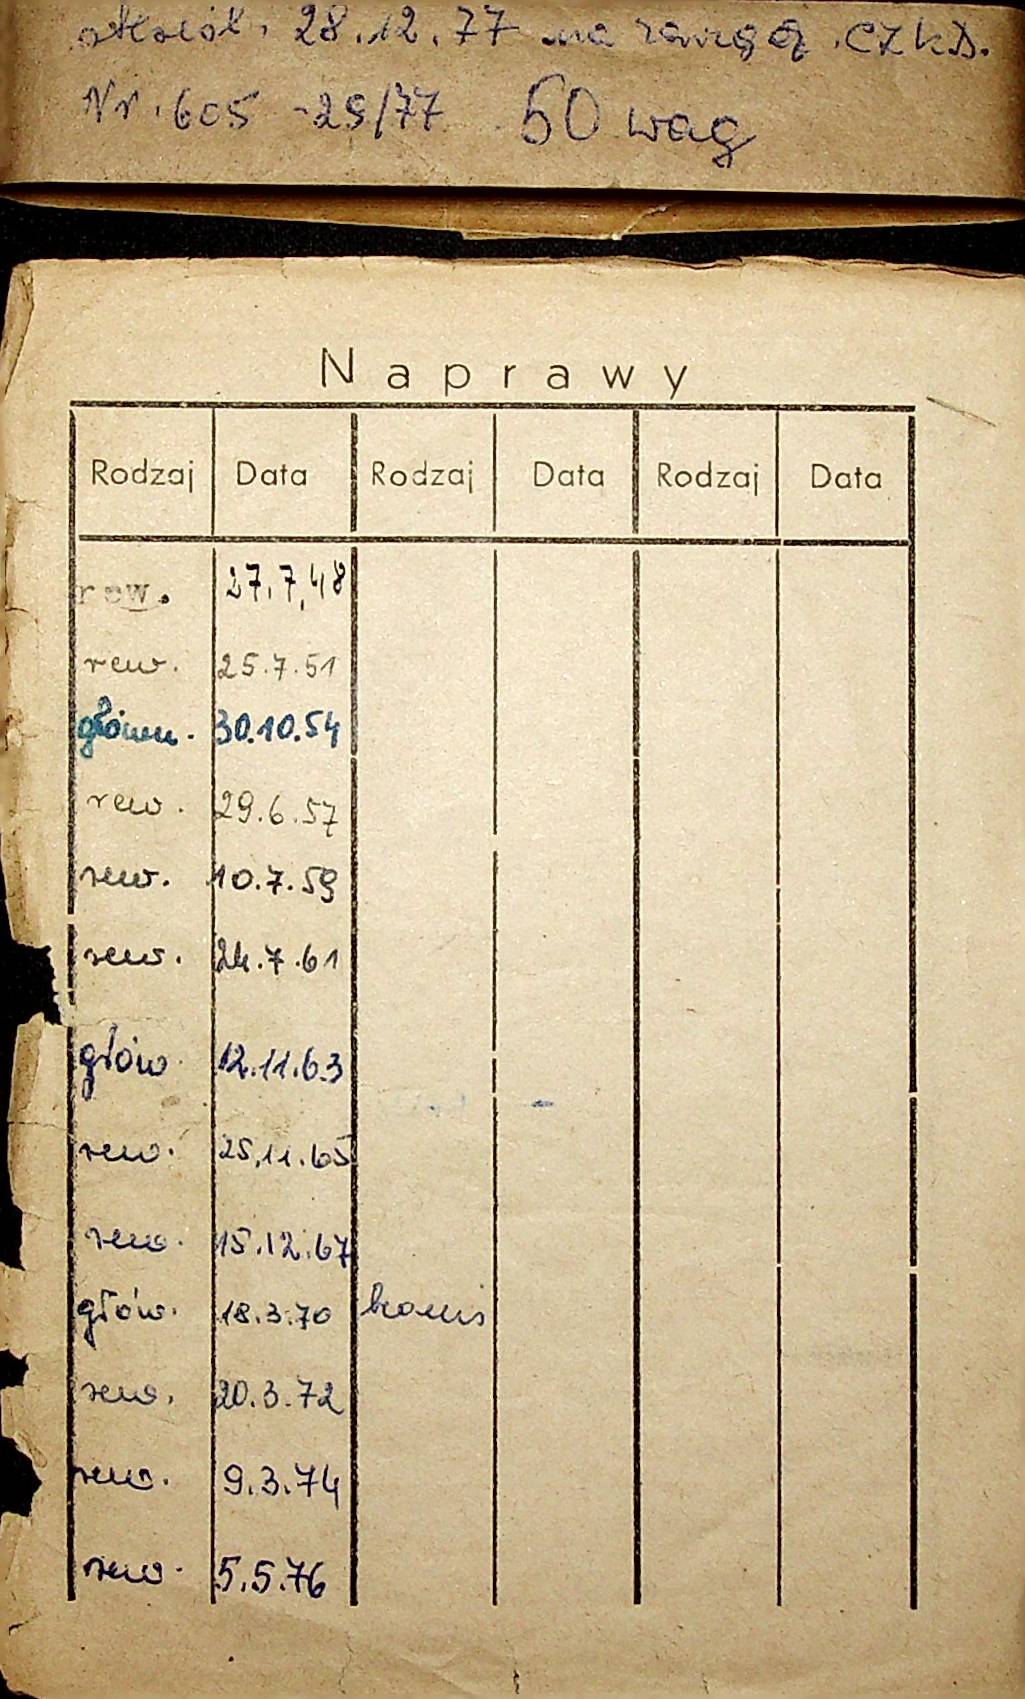 28.12.77 na CZKD.
Nr. 605 -29/77 50 wag
Naprawy
Rodzaj Data Rodzaj Data Rodzaj Data
rew. 27.7,48
rew. 25.7.51
główn. 30.10.54
rew. 29.6.57
rew. 10.7.59
rew. 24.7.61
głów 12.11.63
rew. 25,11.65
rew. 15.12.67
głów. 18.3.70
rew. 20.3.72
rew. 9.3.74
rew. 5.5.76